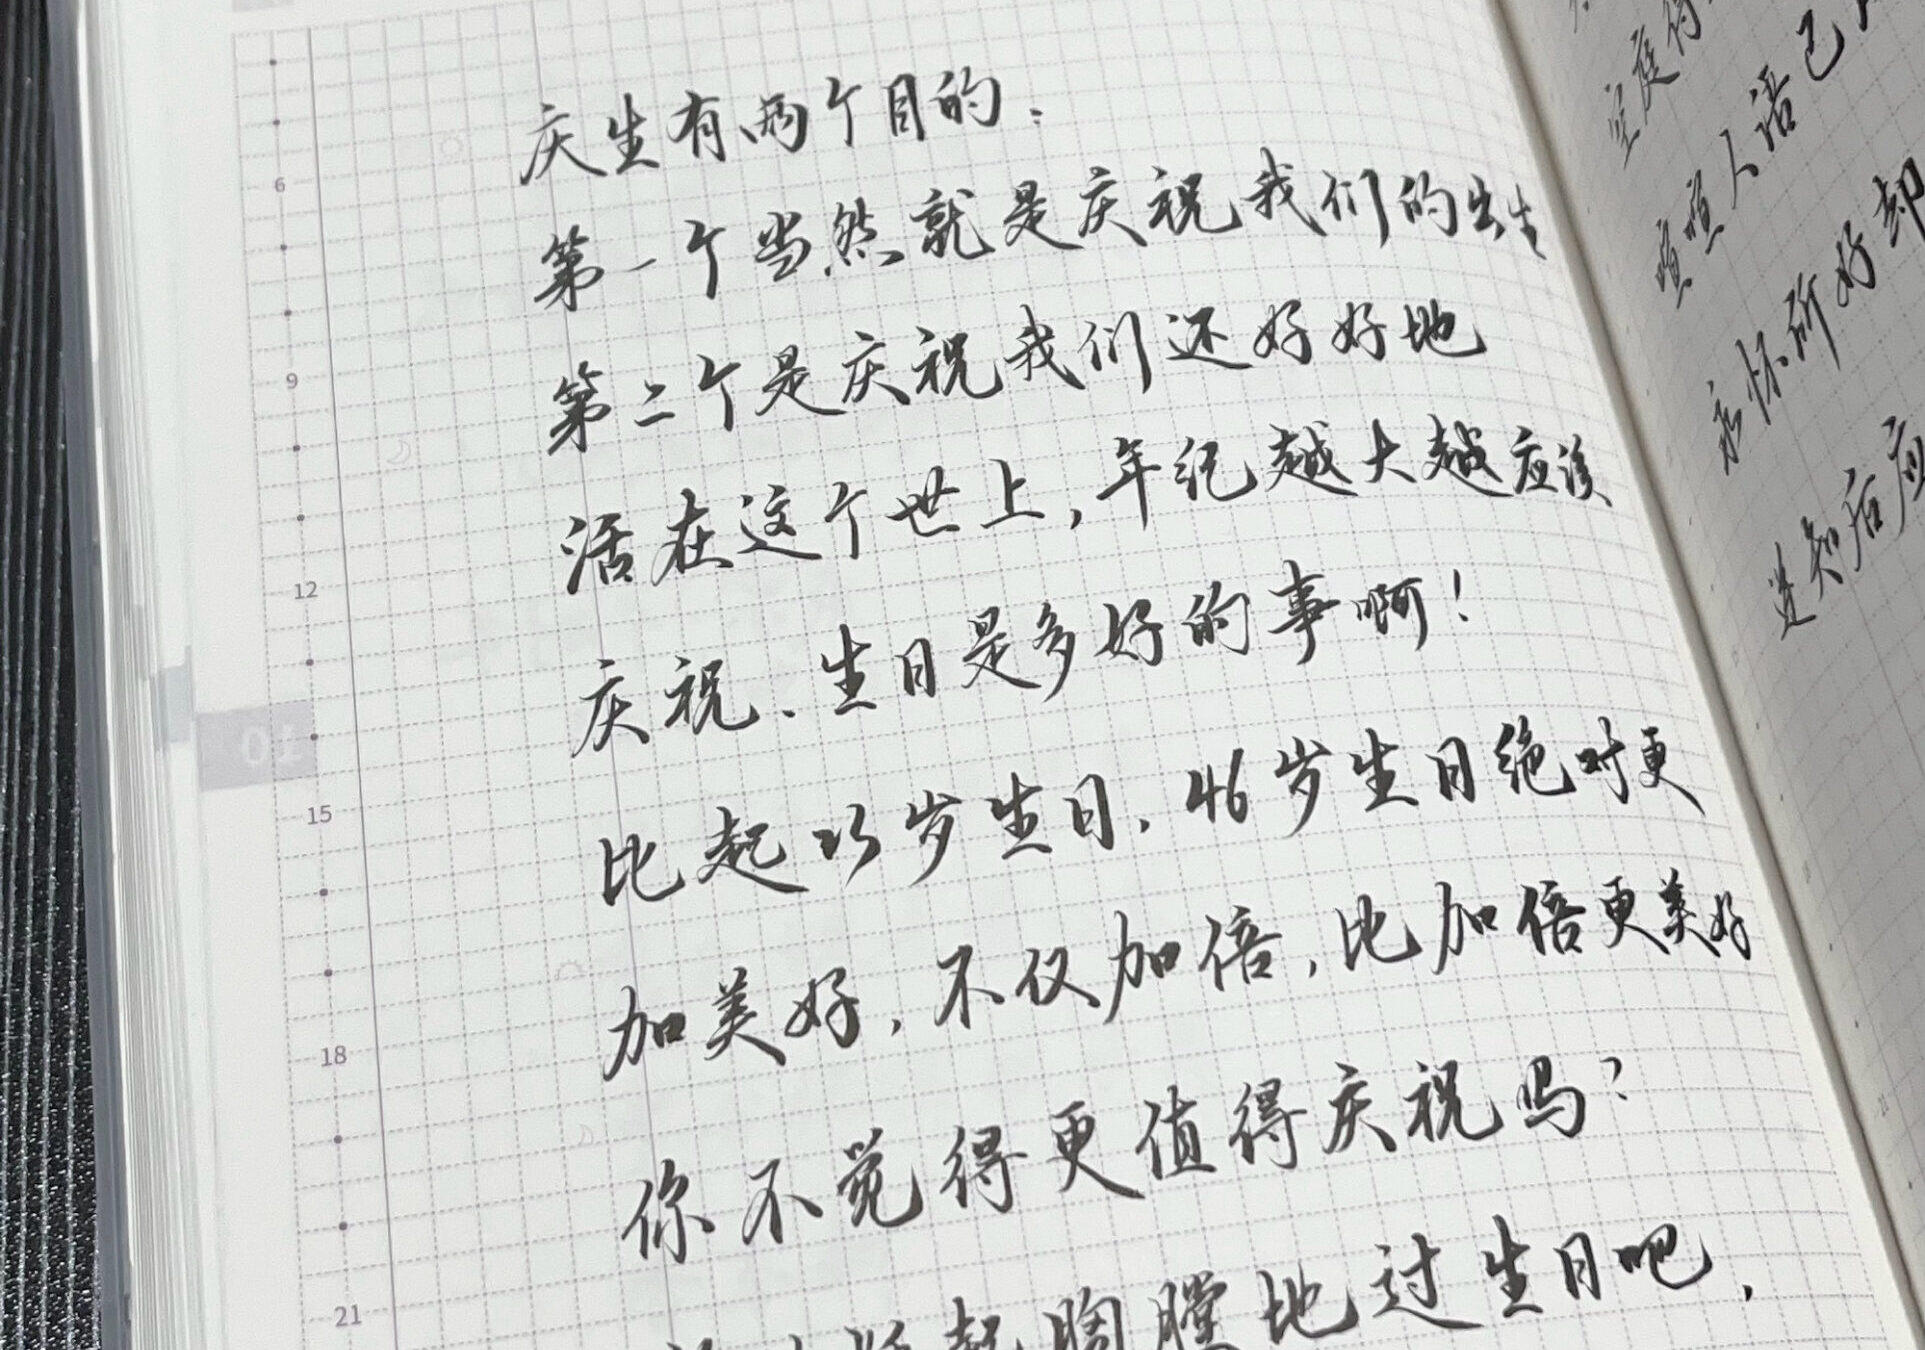 庆生有两个目的：
第一个当然就是庆祝我们的出生
第二个是庆祝我们还好好地
活在这个世上，年纪越大越应该
庆祝、生日是多好的事啊！
比起23岁生日，46岁生日绝对更
加美好，不仅加倍，比加倍更美好
你不觉得更值得庆祝吗？
起胸膛地过生日吧，
6
9
12
01
15
18
21
空庭得
喧喧人语已
永怀所好却
迷知后应